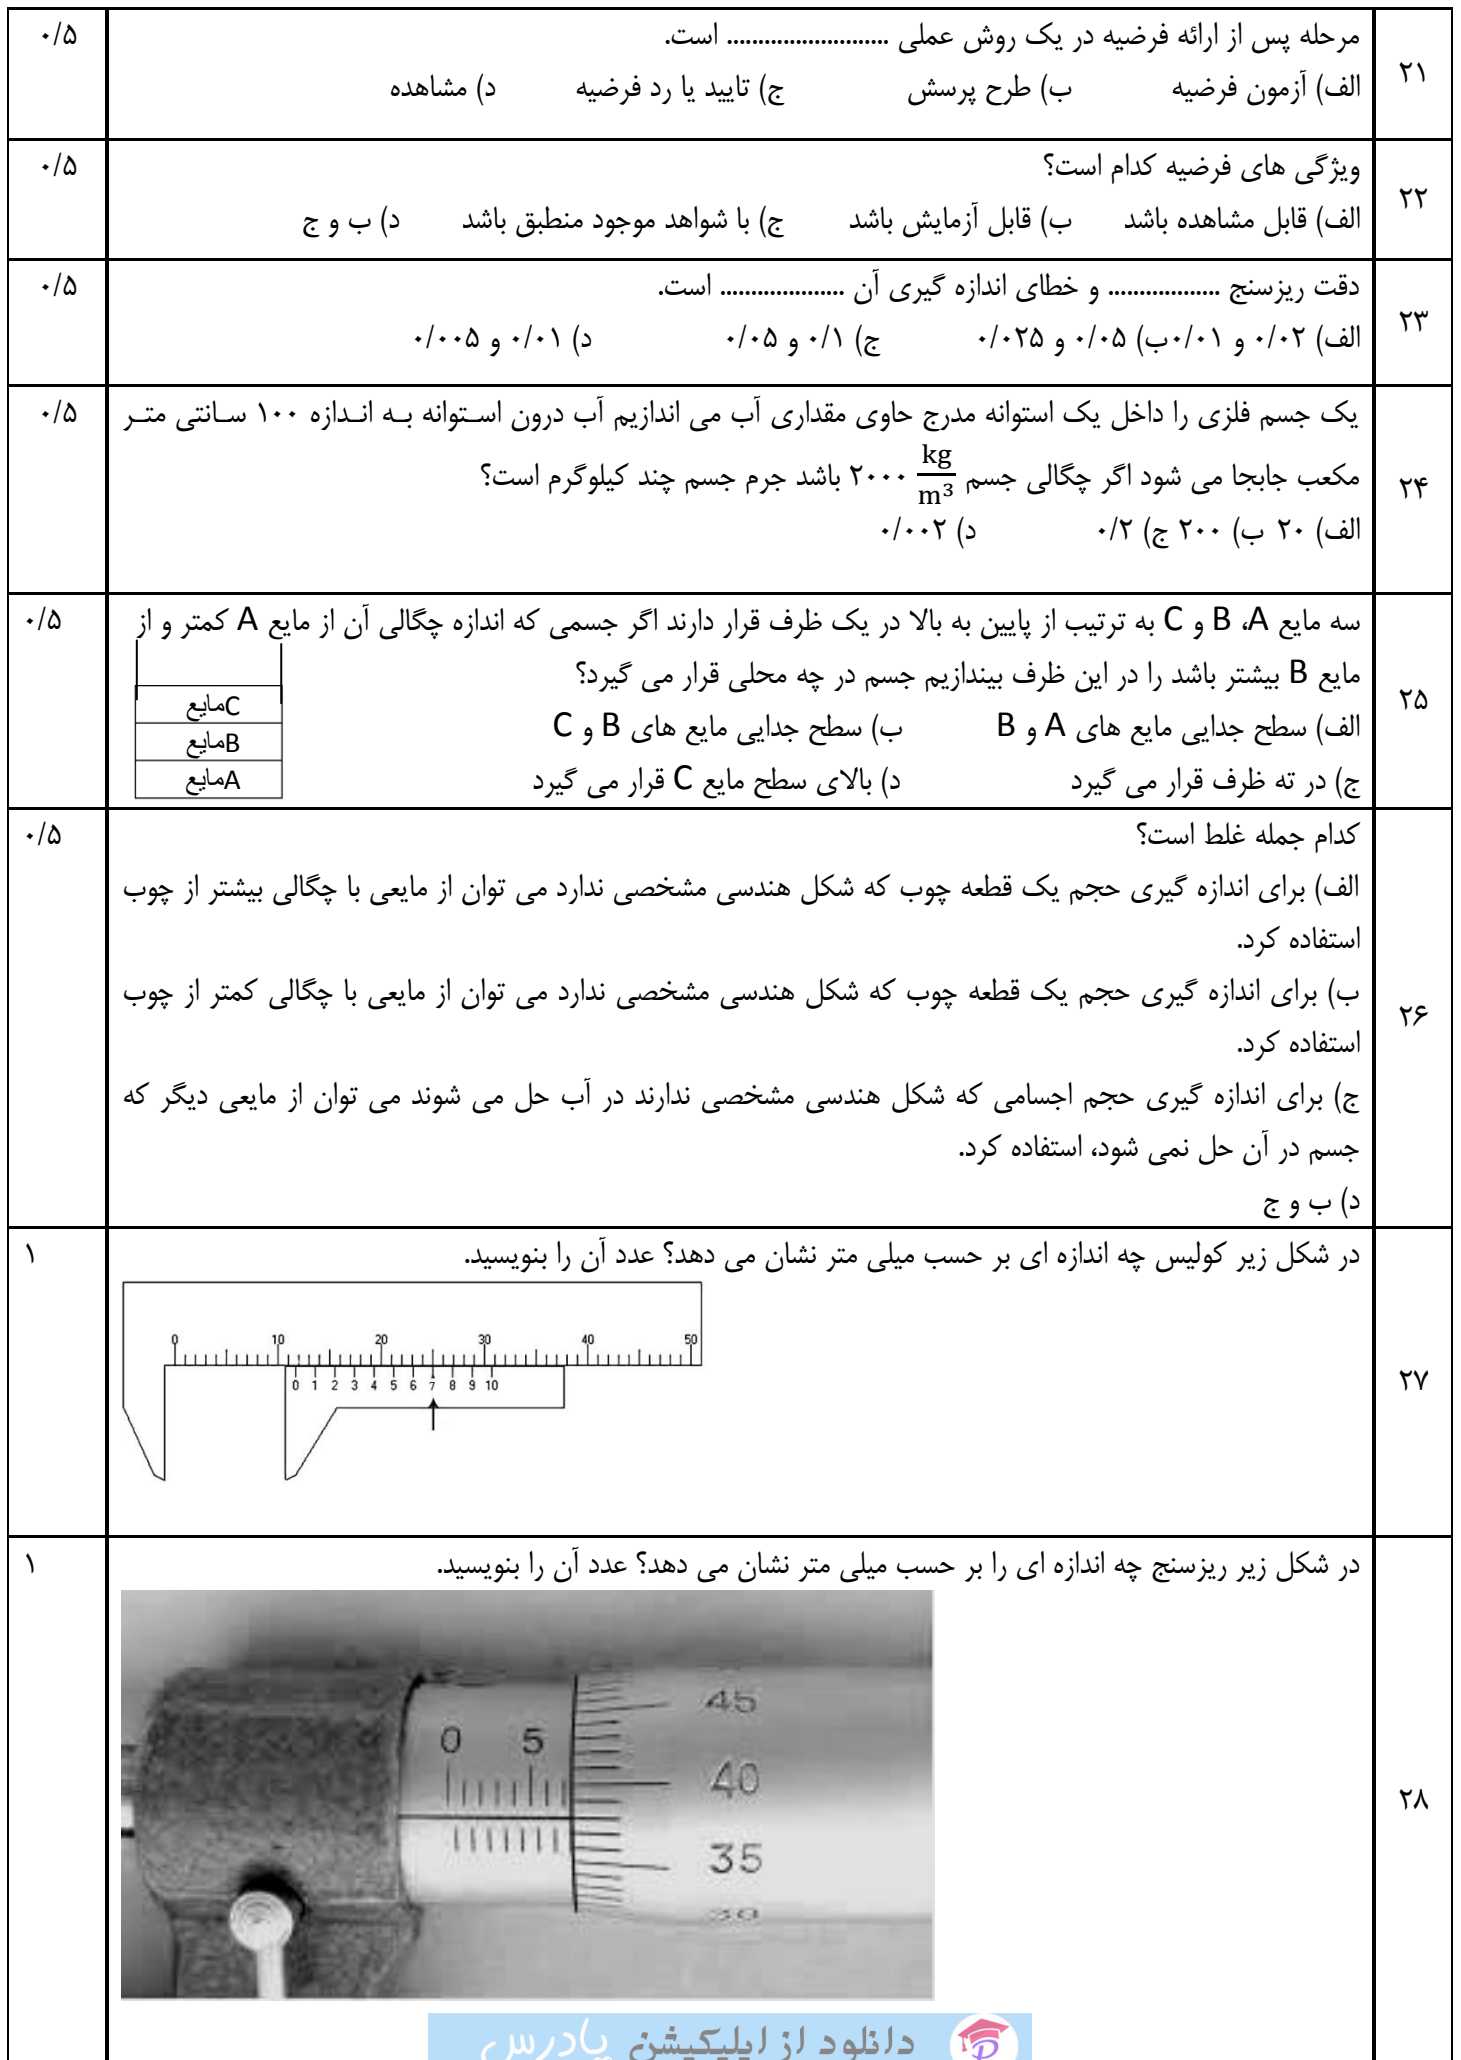 ۲۱
مرحله پس از ارائه فرضیه در یک روش عملی .......................... است.
۰/۵
الف) آزمون فرضیه ب) طرح پرسش ج) تایید یا رد فرضیه د) مشاهده
۲۲
ویژگی های فرضیه کدام است؟
۰/۵
الف) قابل مشاهده باشد ب) قابل آزمایش باشد ج) با شواهد موجود منطبق باشد د) ب و ج
۲۳
دقت ریزسنج .................. و خطای اندازه گیری آن .................... است.
۰/۵
الف) ۰/۰۲ و ۰/۰۱ ب) ۰/۰۵ و ۰/۰۲۵ ج) ۰/۱ و ۰/۰۵ د) ۰/۰۱ و ۰/۰۰۵
۲۴
یک جسم فلزی را داخل یک استوانه مدرج حاوی مقداری آب می اندازیم آب درون استوانه به اندازه ۱۰۰ سانتی متر
۰/۵
مکعب جابجا می شود اگر چگالی جسم ۲۰۰۰ kg/m³ باشد جرم جسم چند کیلوگرم است؟
الف) ۲۰ ب) ۲۰۰ ج) ۰/۲ د) ۰/۰۰۲
۲۵
سه مایع A، B و C به ترتیب از پایین به بالا در یک ظرف قرار دارند اگر جسمی که اندازه چگالی آن از مایع A کمتر و از
۰/۵
مایع B بیشتر باشد را در این ظرف بیندازیم جسم در چه محلی قرار می گیرد؟
الف) سطح جدایی مایع های A و B ب) سطح جدایی مایع های B و C
ج) در ته ظرف قرار می گیرد د) بالای سطح مایع C قرار می گیرد
مایعC
مایعB
مایعA
۲۶
کدام جمله غلط است؟
۰/۵
الف) برای اندازه گیری حجم یک قطعه چوب که شکل هندسی مشخصی ندارد می توان از مایعی با چگالی بیشتر از چوب
استفاده کرد.
ب) برای اندازه گیری حجم یک قطعه چوب که شکل هندسی مشخصی ندارد می توان از مایعی با چگالی کمتر از چوب
استفاده کرد.
ج) برای اندازه گیری حجم اجسامی که شکل هندسی مشخصی ندارند در آب حل می شوند می توان از مایعی دیگر که
جسم در آن حل نمی شود، استفاده کرد.
د) ب و ج
۲۷
در شکل زیر کولیس چه اندازه ای بر حسب میلی متر نشان می دهد؟ عدد آن را بنویسید.
۱
0 10 20 30 40 50
0 1 2 3 4 5 6 7 8 9 10
۲۸
در شکل زیر ریزسنج چه اندازه ای را بر حسب میلی متر نشان می دهد؟ عدد آن را بنویسید.
۱
45
0 5
40
35
30
دانلود از اپلیکیشن پادرس